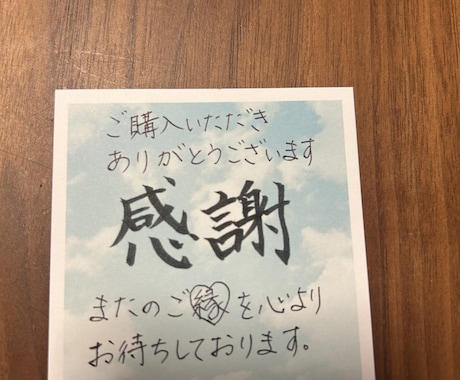 ご購入いただき
ありがとうございます
感謝
またのご縁を心より
お待ちしております。